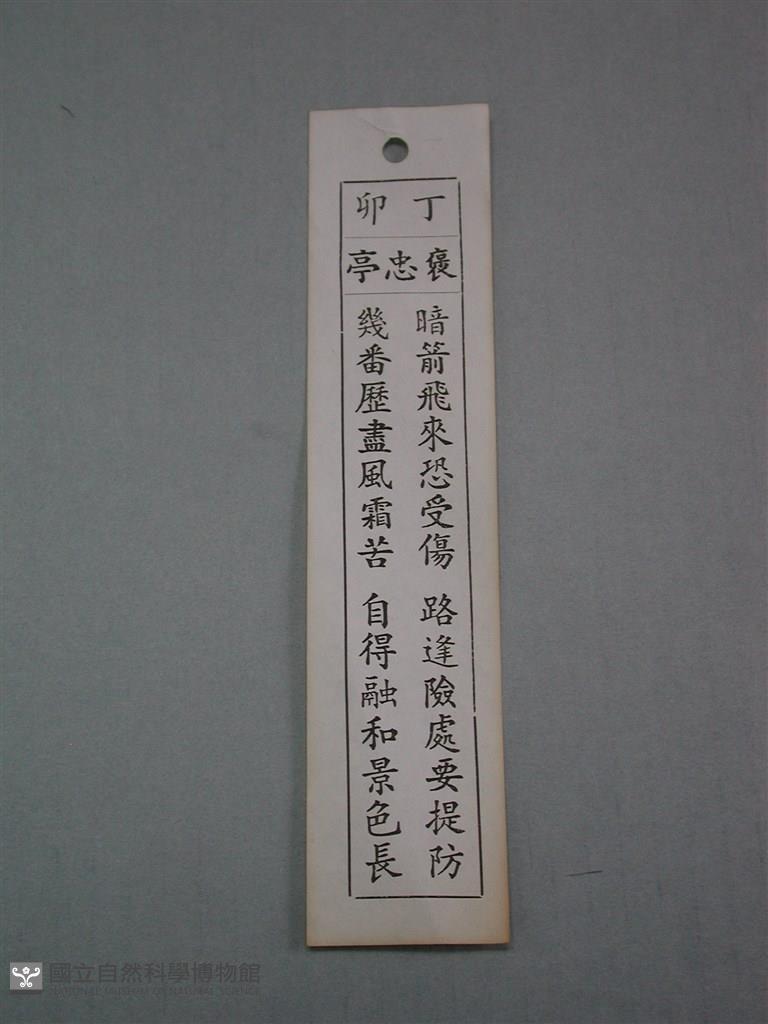 丁卯
褒忠亭
暗箭飛來恐受傷 路逢險處要提防
幾番歷盡風霜苦 自得融和景色長
國立自然科學博物館
NATIONAL MUSEUM OF NATURAL SCIENCE